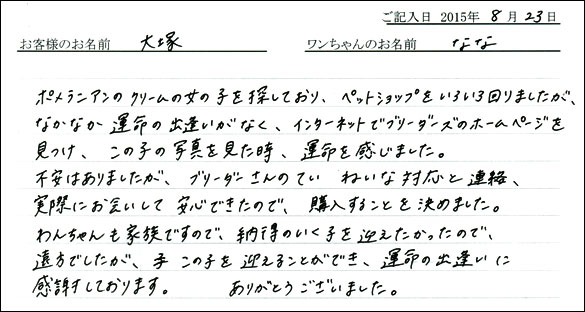 ご記入日 2015年 8月 23日
お客様のお名前 大塚 ワンちゃんのお名前 なな
ポメラニアンのクリームの女の子を探しており、ペットショップをいろいろ回りましたが、
なかなか運命の出逢いがなく、インターネットでブリーダーズのホームページを
見つけ、この子の写真を見た時、運命を感じました。
不安はありましたが、ブリーダーさんのていねいな対応と連絡、
実際にお会いして安心できたので、購入することを決めました。
わんちゃんも家族ですので、納得のいく子を迎えたかったので、
遠方でしたが、この子を迎えることができ、運命の出逢いに
感謝しております。 ありがとうございました。